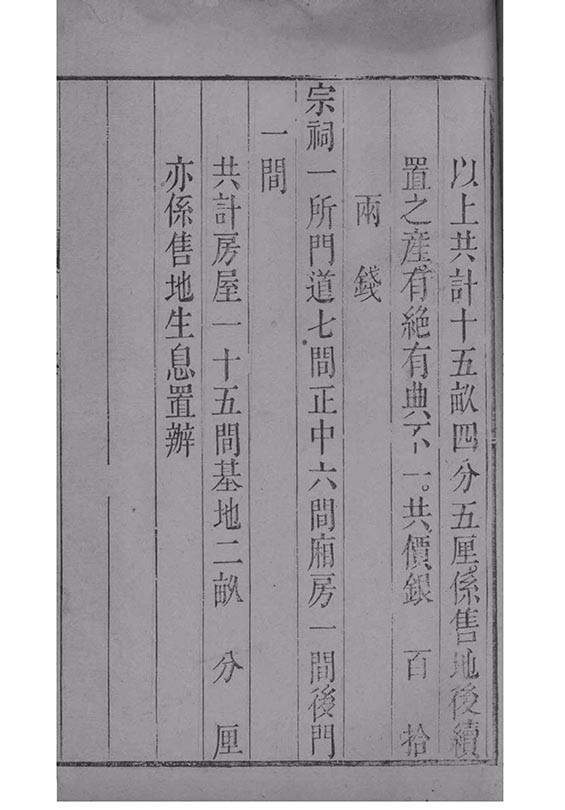 以上共計十五畝四分五厘。係售地後續
置之產。有絕有典不一。共價銀　百　拾
兩　錢
宗祠一所門道七間正中六間廂房一間後門
一間
共計房屋一十五間基地二畝　分　厘
亦係售地生息置辦